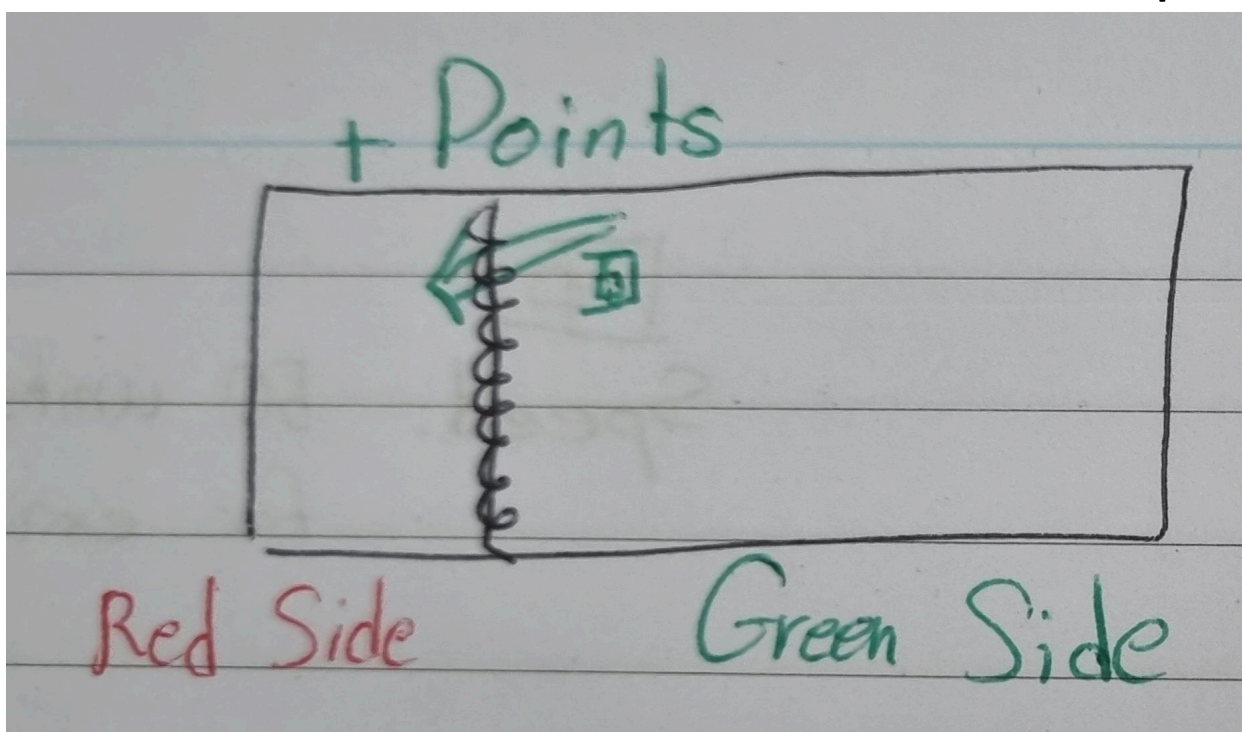 + Points
Red Side
Green Side